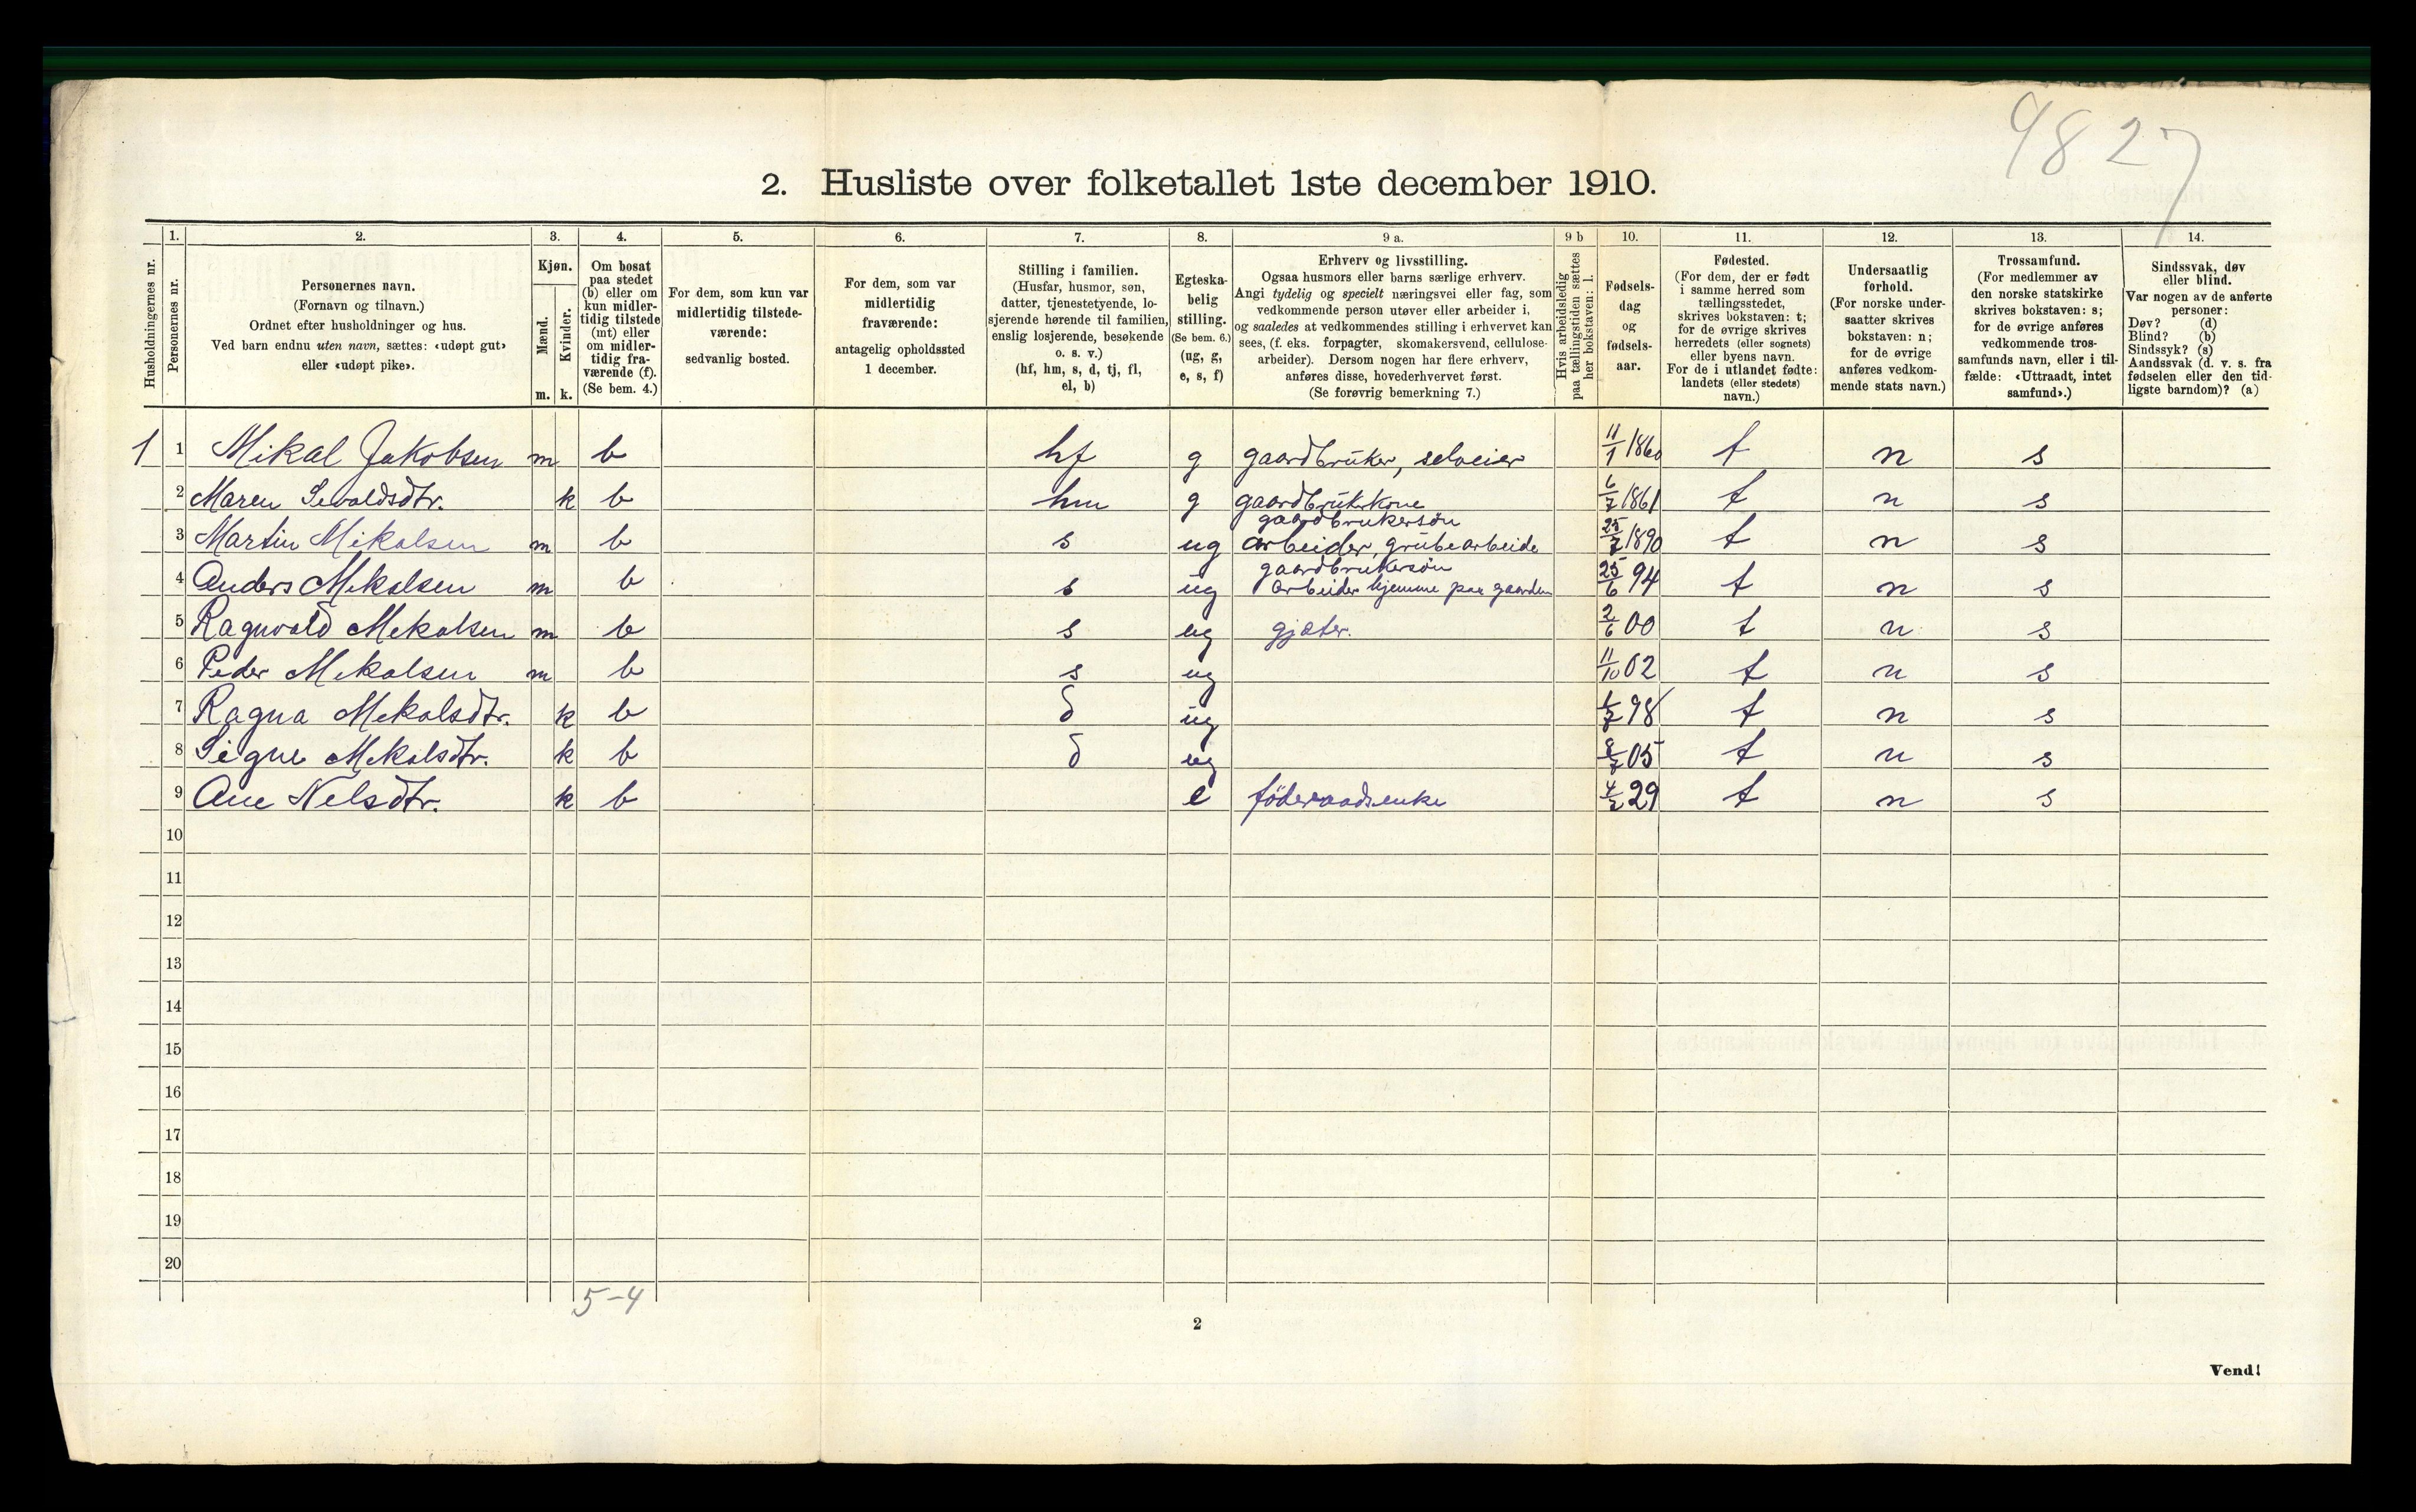 9827
2. Husliste over folketallet 1ste december 1910.
1. 2. 3. 4. 5. 6. 7. 8. 9 a. 9 b 10. 11. 12. 13. 14.
Husholdningernes nr.
Personernes nr.
Personernes navn.
(Fornavn og tilnavn.)
Ordnet efter husholdninger og hus.
Ved barn endnu uten navn, sættes: «udøpt gut»
eller «udøpt pike».
Kjøn.
Mænd.
Kvinder.
m. k.
Om bosat
paa stedet
(b) eller om
kun midler-
tidig tilstede
(mt) eller
om midler-
tidig fra-
værende (f).
(Se bem. 4.)
For dem, som kun var
midlertidig tilstede-
værende:
sedvanlig bosted.
For dem, som var
midlertidig
fraværende:
antagelig opholdssted
1 december.
Stilling i familien.
(Husfar, husmor, søn,
datter, tjenestetyende, lo-
sjerende hørende til familien,
enslig losjerende, besøkende
o. s. v.)
(hf, hm, s, d, tj, fl,
el, b)
Egteska-
belig
stilling.
(Se bem. 6.)
(ug, g,
e, s, f)
Erhverv og livsstilling.
Ogsaa husmors eller barns særlige erhverv.
Angi tydelig og specielt næringsvei eller fag, som
vedkommende person utøver eller arbeider i,
og saaledes at vedkommendes stilling i erhvervet kan
sees, (f. eks. forpagter, skomakersvend, cellulose-
arbeider). Dersom nogen har flere erhverv,
anføres disse, hovederhvervet først.
(Se forøvrig bemerkning 7.)
Hvis arbeidsledig
paa tællingstiden sættes
her bokstaven: l.
Fødsels-
dag
og
fødsels-
aar.
Fødested.
(For dem, der er født
i samme herred som
tællingsstedet,
skrives bokstaven: t;
for de øvrige skrives
herredets (eller sognets)
eller byens navn.
For de i utlandet fødte:
landets (eller stedets)
navn.)
Undersaatlig
forhold.
(For norske under-
saatter skrives
bokstaven: n;
for de øvrige
anføres vedkom-
mende stats navn.)
Trossamfund.
(For medlemmer av
den norske statskirke
skrives bokstaven: s;
for de øvrige anføres
vedkommende tros-
samfunds navn, eller i til-
fælde: «Uttraadt, intet
samfund».)
Sindssvak, døv
eller blind.
Var nogen av de anførte
personer:
Døv? (d)
Blind? (b)
Sindssyk? (s)
Aandssvak (d. v. s. fra
fødselen eller den tid-
ligste barndom)? (a)
1 1 Mikal Jakobsen m b hf g gaardbruker, selveier 11/1 1860 t n s
2 Maren Sevaldsdtr. k b hm g gaardbrukerkone 6/7 1861 t n s
gaardbrukersøn
3 Martin Mikalsen m b s ug arbeider, grubearbeide 25/7 1890 t n s
gaardbrukersøn
4 Anders Mikalsen m b s ug arbeider hjemme paa gaarden 25/6 94 t n s
5 Ragnvald Mikalsen m b s ug gjæter. 2/6 00 t n s
6 Peder Mikalsen m b s ug 11/10 02 t n s
7 Ragna Mikalsdtr. k b d ug 98 t n s
8 Signe Mikalsdtr. k b d ug 05 t n s
9 Ane Nelsdtr. k b e føderaadsenke 29 t n s
10
11
12
13
14
15
16
17
18
19
20
5-4
2
Vend!